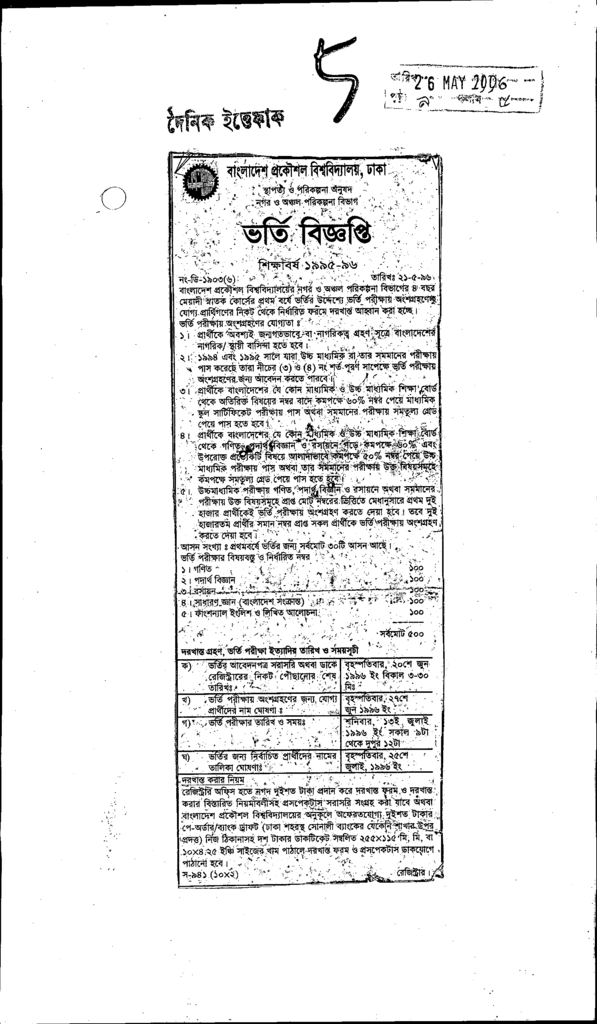 ৮
তারিখ 26 MAY 2006
দৈনিক ইত্তেফাক
বাংলাদেশ প্রকৌশল বিশ্ববিদ্যালয়, ঢাকা
স্থাপত্য ও পরিকল্পনা অনুষদ
নগর ও অঞ্চল পরিকল্পনা বিভাগ
ভর্তি বিজ্ঞপ্তি
শিক্ষাবর্ষ ১৯৯৫-৯৬
নং-ভি-১৯০৩(৬) তারিখঃ ২১-৫-৯৬
বাংলাদেশ প্রকৌশল বিশ্ববিদ্যালয়ের নগর ও অঞ্চল পরিকল্পনা বিভাগের ৪ বছর
মেয়াদী স্নাতক কোর্সের প্রথম বর্ষে ভর্তির উদ্দেশ্যে ভর্তি পরীক্ষায় অংশগ্রহণেচ্ছু
যোগ্য প্রার্থীগণের নিকট থেকে নির্ধারিত ফরমে দরখাস্ত আহ্বান করা হচ্ছে।
ভর্তি পরীক্ষায় অংশগ্রহণের যোগ্যতা ঃ
১। প্রার্থীকে অবশ্যই জন্মগতভাবে বা নাগরিকত্ব গ্রহণ সূত্রে বাংলাদেশের
নাগরিক/ স্থায়ী বাসিন্দা হতে হবে।
২। ১৯৯৪ এবং ১৯৯৫ সালে যারা উচ্চ মাধ্যমিক বা তার সমমানের পরীক্ষায়
পাস করেছে তারা নীচের (৩) ও (৪) নং শর্ত পূরণ সাপেক্ষে ভর্তি পরীক্ষায়
অংশগ্রহণের জন্য আবেদন করতে পারবে।
৩। প্রার্থীকে বাংলাদেশের যে কোন মাধ্যমিক ও উচ্চ মাধ্যমিক শিক্ষা বোর্ড
থেকে অতিরিক্ত বিষয়ের নম্বর বাদে কমপক্ষে ৬০% নম্বর পেয়ে মাধ্যমিক
স্কুল সার্টিফিকেট পরীক্ষায় পাস অথবা সমমানের পরীক্ষায় সমতুল্য গ্রেড
পেয়ে পাস হতে হবে।
৪। প্রার্থীকে বাংলাদেশের যে কোন মাধ্যমিক ও উচ্চ মাধ্যমিক শিক্ষা বোর্ড
থেকে গণিত, পদার্থ বিজ্ঞান ও রসায়নে গড়ে কমপক্ষে ৬০% এবং
উপরোক্ত প্রত্যেকটি বিষয়ে আলাদাভাবে কমপক্ষে ৫০% নম্বর পেয়ে উচ্চ
মাধ্যমিক পরীক্ষায় পাস অথবা তার সমমানের পরীক্ষায় উক্ত বিষয়সমূহে
কমপক্ষে সমতুল্য গ্রেড পেয়ে পাস হতে হবে।
৫। উচ্চমাধ্যমিক পরীক্ষায় গণিত, পদার্থ বিজ্ঞান ও রসায়নে অথবা সমমানের
পরীক্ষায় উক্ত বিষয়সমূহে প্রাপ্ত মোট নম্বরের ভিত্তিতে মেধানুসারে প্রথম দুই
হাজার প্রার্থীকেই ভর্তি পরীক্ষায় অংশগ্রহণ করতে দেয়া হবে। তবে দুই
হাজারতম প্রার্থীর সমান নম্বর প্রাপ্ত সকল প্রার্থীকে ভর্তি পরীক্ষায় অংশগ্রহণ
করতে দেয়া হবে।
আসন সংখ্যা ঃ প্রথমবর্ষে ভর্তির জন্য সর্বমোট ৩০টি আসন আছে।
ভর্তি পরীক্ষার বিষয়বস্তু ও নির্ধারিত নম্বর
১। গণিত ১০০
২। পদার্থ বিজ্ঞান ১০০
৩। রসায়ন ১০০
৪। সাধারণ জ্ঞান (বাংলাদেশ সংক্রান্ত) ১০০
৫। ফাংশন্যাল ইংলিশ ও লিখিত আলোচনা ১০০
সর্বমোট ৫০০
দরখাস্ত গ্রহণ, ভর্তি পরীক্ষা ইত্যাদির তারিখ ও সময়সূচী
ক) ভর্তির আবেদনপত্র সরাসরি অথবা ডাকে রেজিস্ট্রারের নিকট পৌছানোর শেষ তারিখঃ
বৃহস্পতিবার, ২০শে জুন ১৯৯৬ ইং বিকাল ৩-৩০ মিঃ
খ) ভর্তি পরীক্ষায় অংশগ্রহণের জন্য যোগ্য প্রার্থীদের নাম ঘোষণা ঃ
বৃহস্পতিবার, ২৭শে জুন ১৯৯৬ ইং
গ) ভর্তি পরীক্ষার তারিখ ও সময়ঃ
শনিবার, ১৩ই জুলাই ১৯৯৬ ইং সকাল ৯টা থেকে দুপুর ১২টা
ঘ) ভর্তির জন্য নির্বাচিত প্রার্থীদের নামের তালিকা ঘোষণাঃ
বৃহস্পতিবার, ২৫শে জুলাই, ১৯৯৬ ইং
দরখাস্ত করার নিয়ম
রেজিস্ট্রার অফিস হতে নগদ দুইশত টাকা প্রদান করে দরখাস্ত ফরম ও দরখাস্ত
করার বিস্তারিত নিয়মাবলীসহ প্রসপেকটাস সরাসরি সংগ্রহ করা যাবে অথবা
বাংলাদেশ প্রকৌশল বিশ্ববিদ্যালয়ের অনুকূলে অফেরতযোগ্য দুইশত টাকার
পে-অর্ডার/ব্যাংক ড্রাফট (ঢাকা শহরস্থ সোনালী ব্যাংকের যেকোন শাখার উপর
প্রদত্ত) নিজ ঠিকানাসহ দশ টাকার ডাকটিকেট সম্বলিত ২৫৫x১১৫ মি, মি, বা
১০x৪.২৫ ইঞ্চি সাইজের খাম পাঠালে দরখাস্ত ফরম ও প্রসপেকটাস ডাকযোগে
পাঠানো হবে।
স-৯৪১ (১০x২) রেজিস্ট্রার।